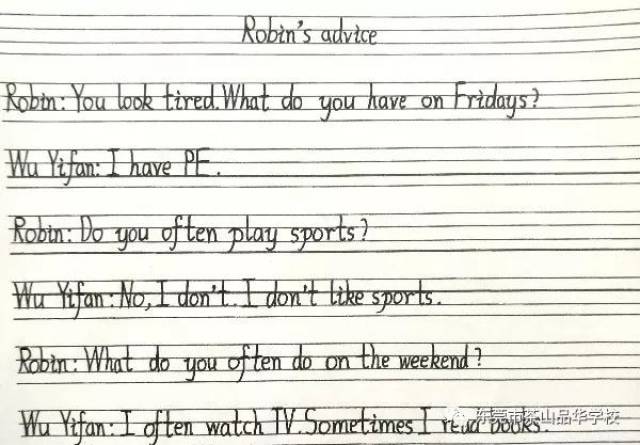 Robin's advice
Robin: You look tired. What do you have on Fridays?
Wu Yifan: I have PE.
Robin: Do you often play sports?
Wu Yifan: No, I don't. I don't like sports.
Robin: What do you often do on the weekend?
Wu Yifan: I often watch TV. Sometimes I read books.
东莞市茶山品华学校